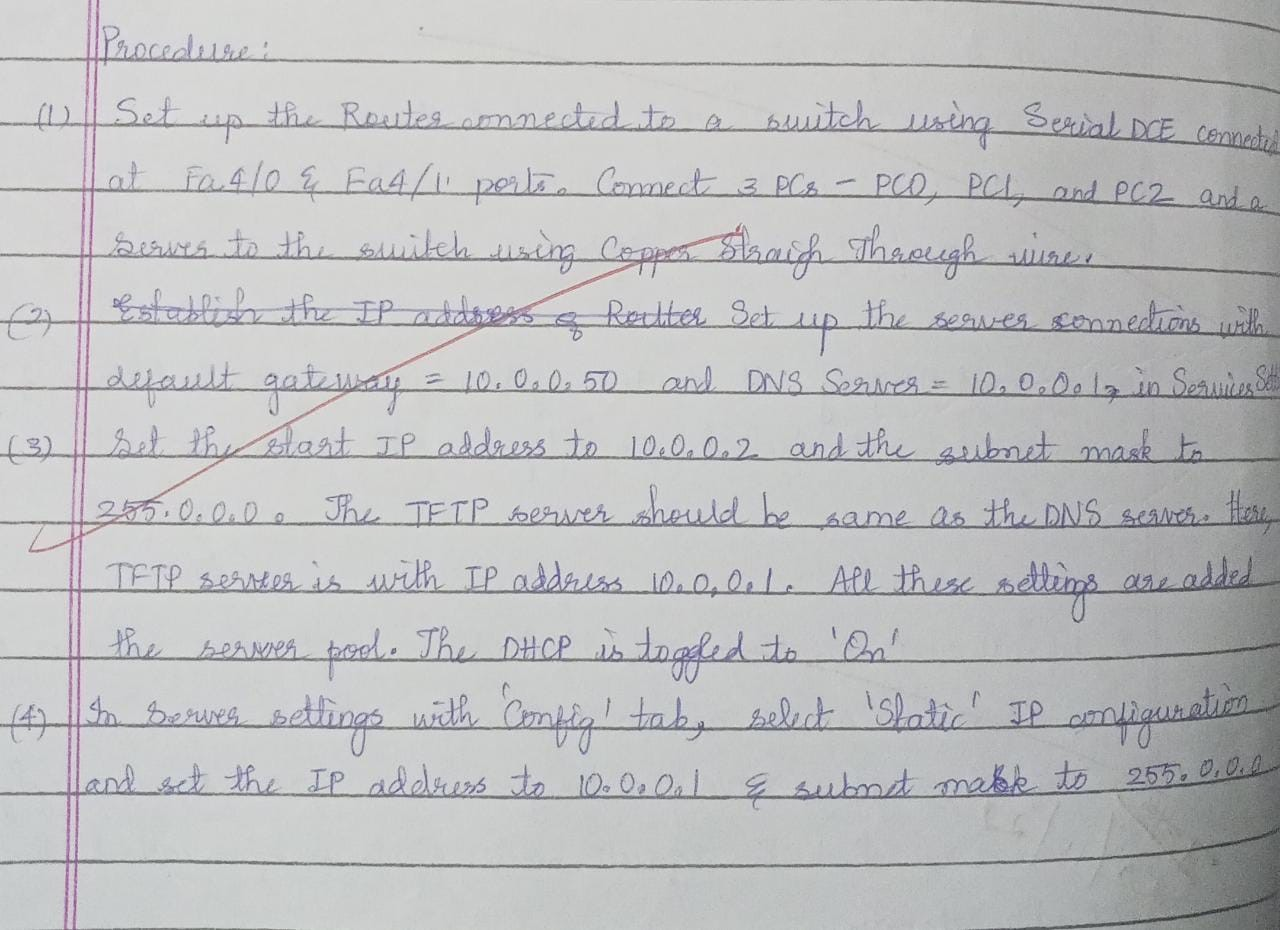 Procedure:
(1) Set up the Router connected to a switch using Serial DCE connected
at Fa4/0 & Fa4/1 ports. Connect 3 PCs - PC0, PC1, and PC2 and a
Server to the switch using Copper Straigh Through wire.
(2) Establish the IP address of Routter Set up the server connections with
default gateway = 10.0.0.50 and DNS Server = 10.0.0.1, in Services
(3) Set the start IP address to 10.0.0.2 and the subnet mask to
255.0.0.0. The TFTP server should be same as the DNS server. Here,
TFTP server is with IP address 10.0.0.1. All these settings are added
the server pool. The DHCP is toggled to 'On'
(4) In Server settings with 'Config' tab, select 'Static' IP configuration
and set the IP address to 10.0.0.1 & subnet mask to 255.0.0.0